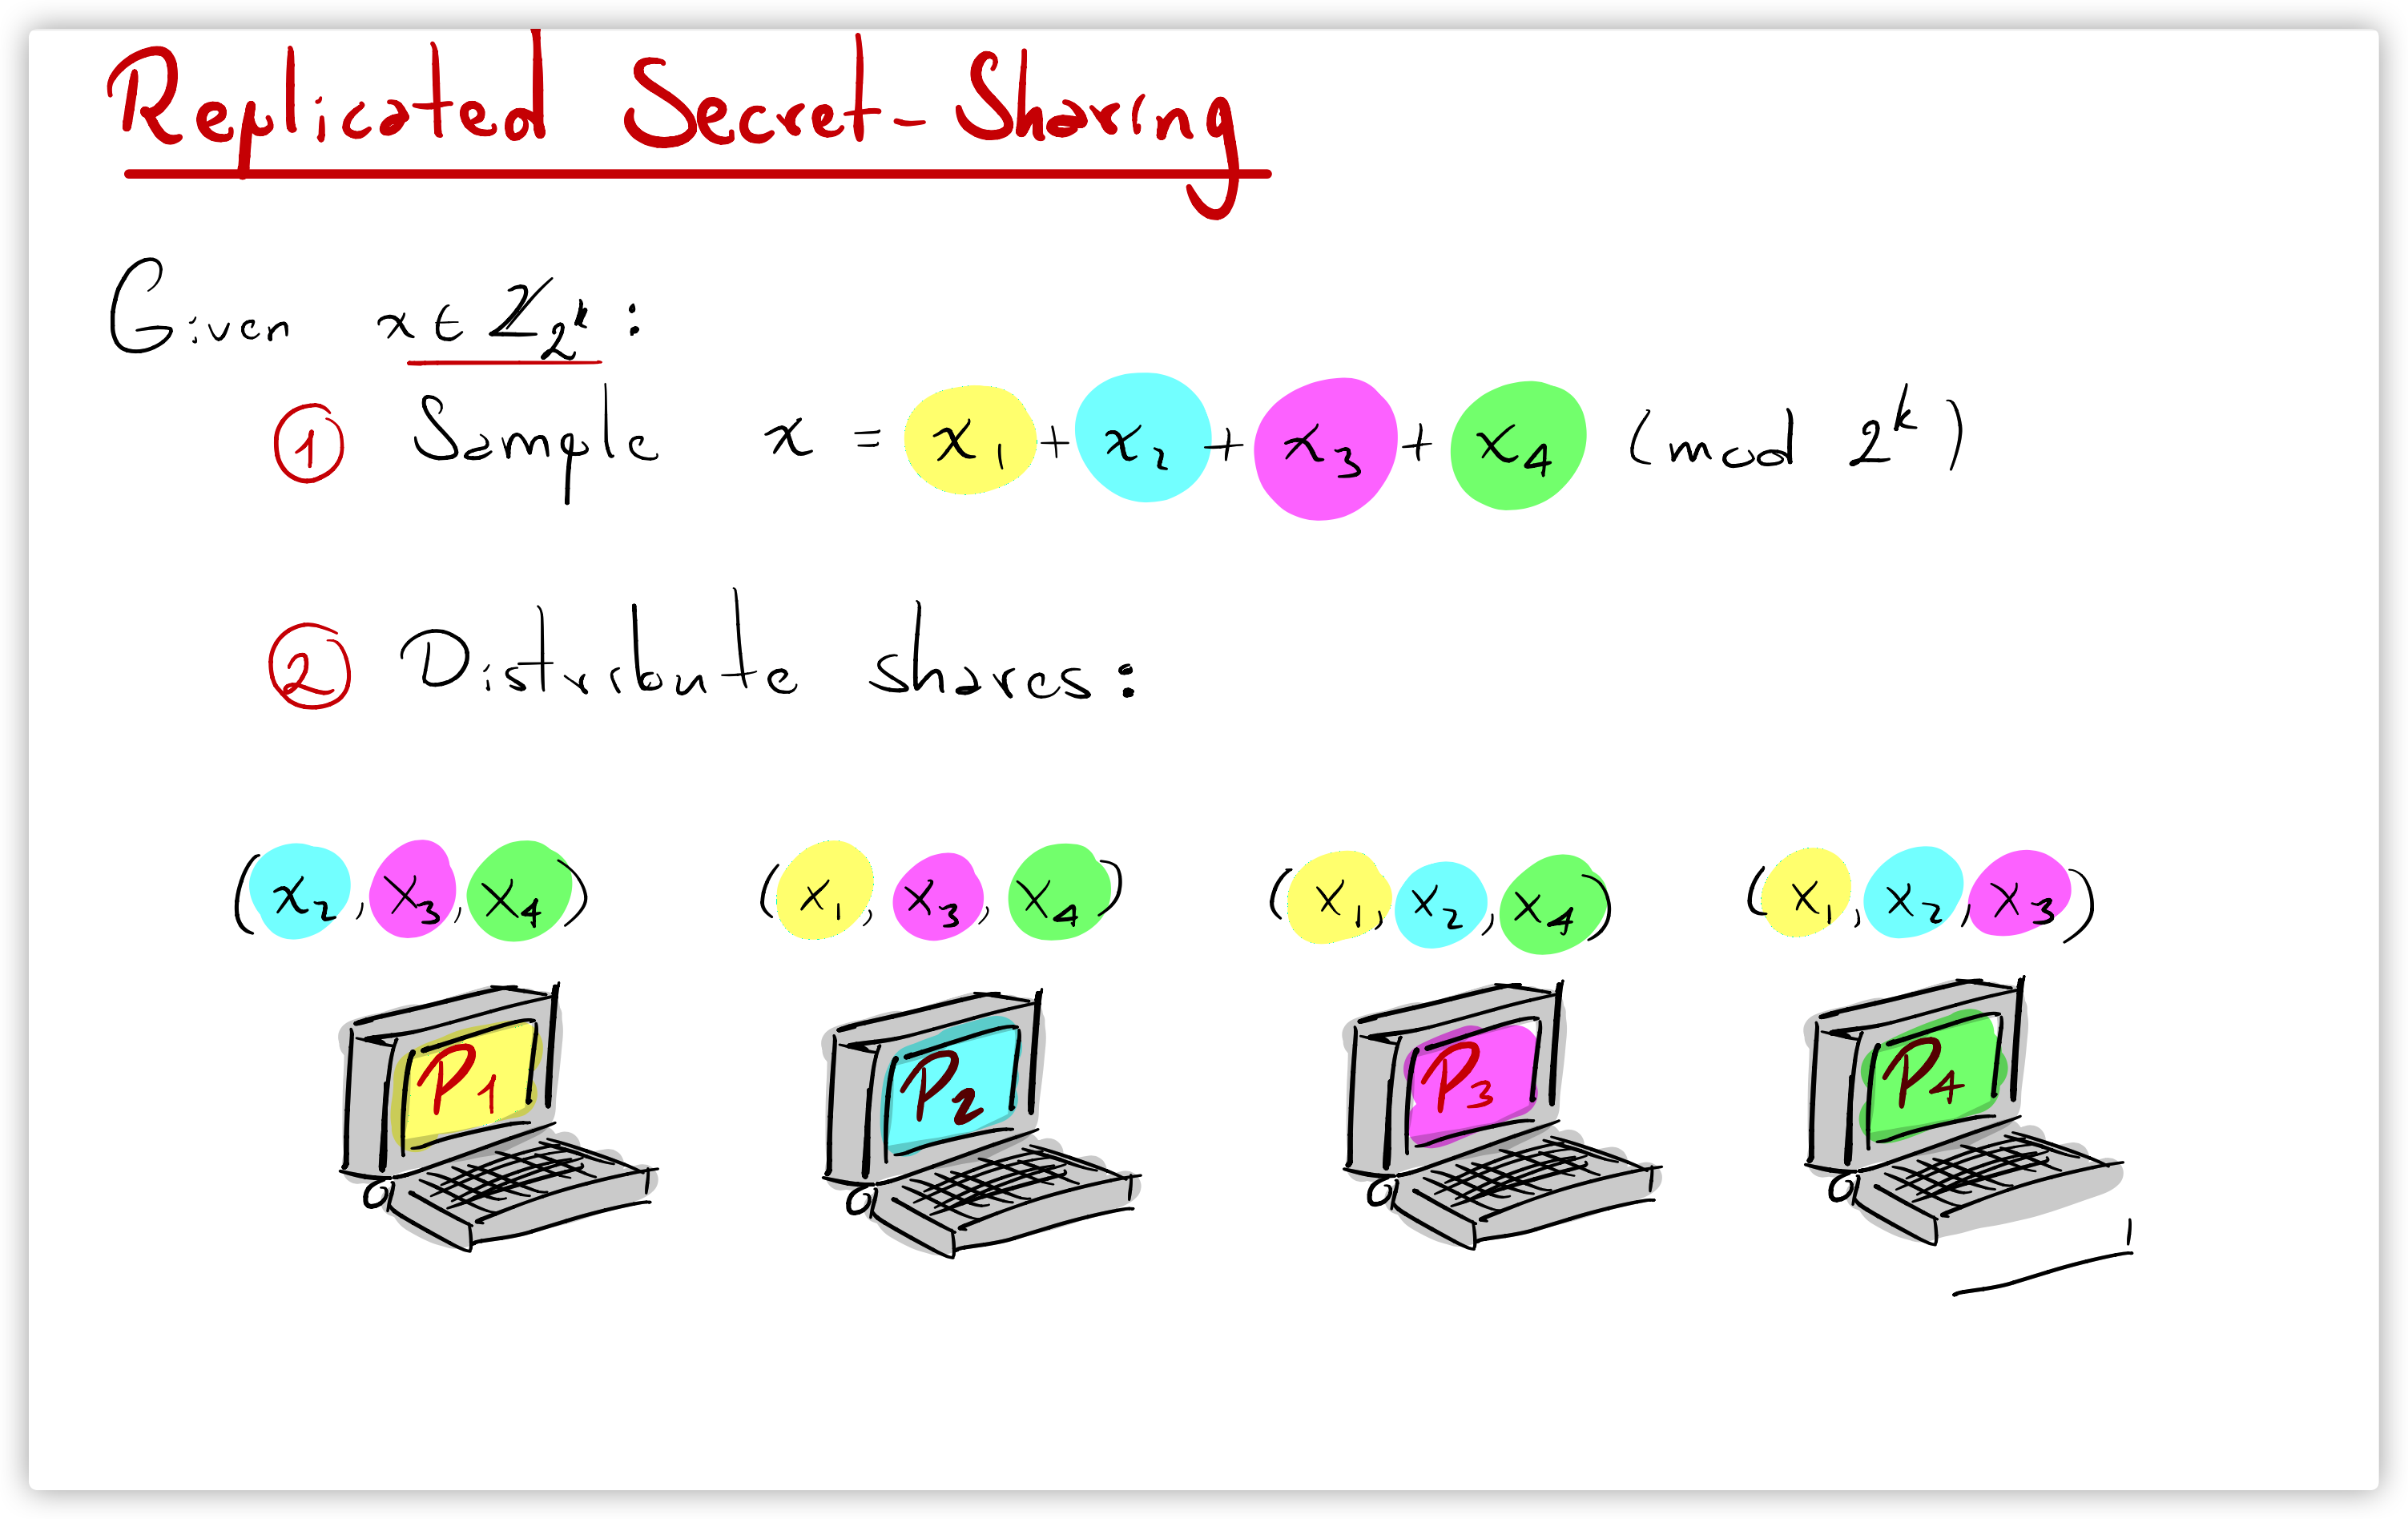 Replicated Secret-Sharing
Given x ∈ ℤ_2^k :
① Sample x = x₁ + x₂ + x₃ + x₄ (mod 2^k)
② Distribute shares:
(x₂, x₃, x₄) (x₁, x₃, x₄) (x₁, x₂, x₄) (x₁, x₂, x₃)
P₁ P₂ P₃ P₄